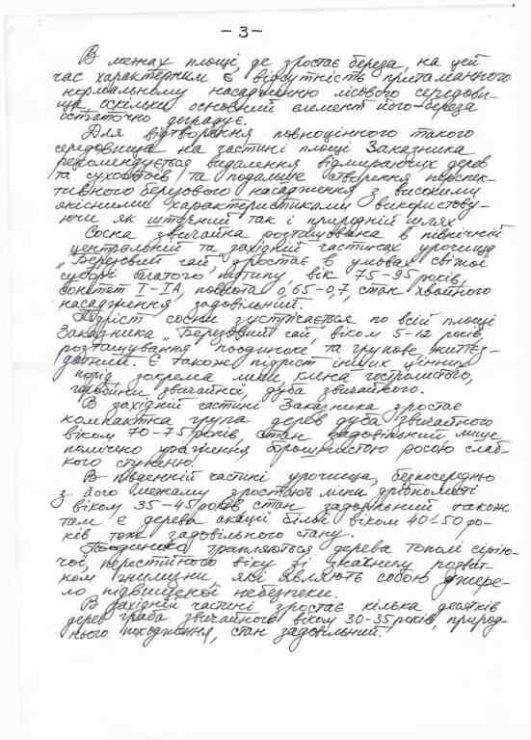 - 3 -
В межах площі, де зростає береза, на цей
час характерним є відсутність притаманного
нормальному насадженню лісового середови-
ща, оскільки основний елемент його - береза
остаточно деградує.
Для відтворення повноцінного такого
середовища на частині площі Заказника
рекомендується видалення відмираючих дерев
та сухостоїв та подальше створення перспек-
тивного березового насадження з високими
якісними характеристиками використову-
ючи як штучний так і природній шлях
Сосна звичайна розташована в північній
центральній та західній частинах урочища
"Березовий гай" зростає в умовах свіжої
субори багатого типу вік 75-95 років,
бонітет I-IA, повнота 0,65-0,7, стан хвойного
насадження задовільний.
Підріст сосни зустрічається по всій площі
Заказника "Березовий гай", віком 5-12 років
розташування поодиноке та групове, життєз-
датний. Також підріст інших цінних
порід зокрема липи, клена гостролистого,
горобини звичайної, дуба звичайного.
В західній частині Заказника зростає
компактна група дерев дуба звичайного
віком 70-75 років, стан задовільний лише
помічено ураження борошнистою росою слаб-
кого ступеню.
В південній частині урочища, безпосередньо
з його межами зростають липи дрібнолисті
віком 35-45 років стан задовільний також
там є дерева акації білої віком 40-50 ро-
ків теж задовільного стану.
Поодиноко трапляються дерева тополі сірію-
чої, перестійного віку зі значним розвит-
ком гнилизни, які являють собою джере-
ло підвищеної небезпеки.
В західній частині зростає кілька десятків
дерев граба звичайного віком 30-35 років, природ-
нього походження, стан задовільний.